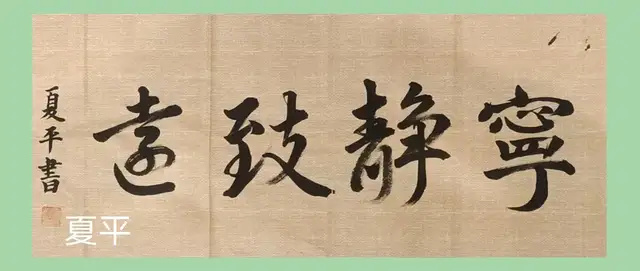 寧靜致遠
夏平書
夏平